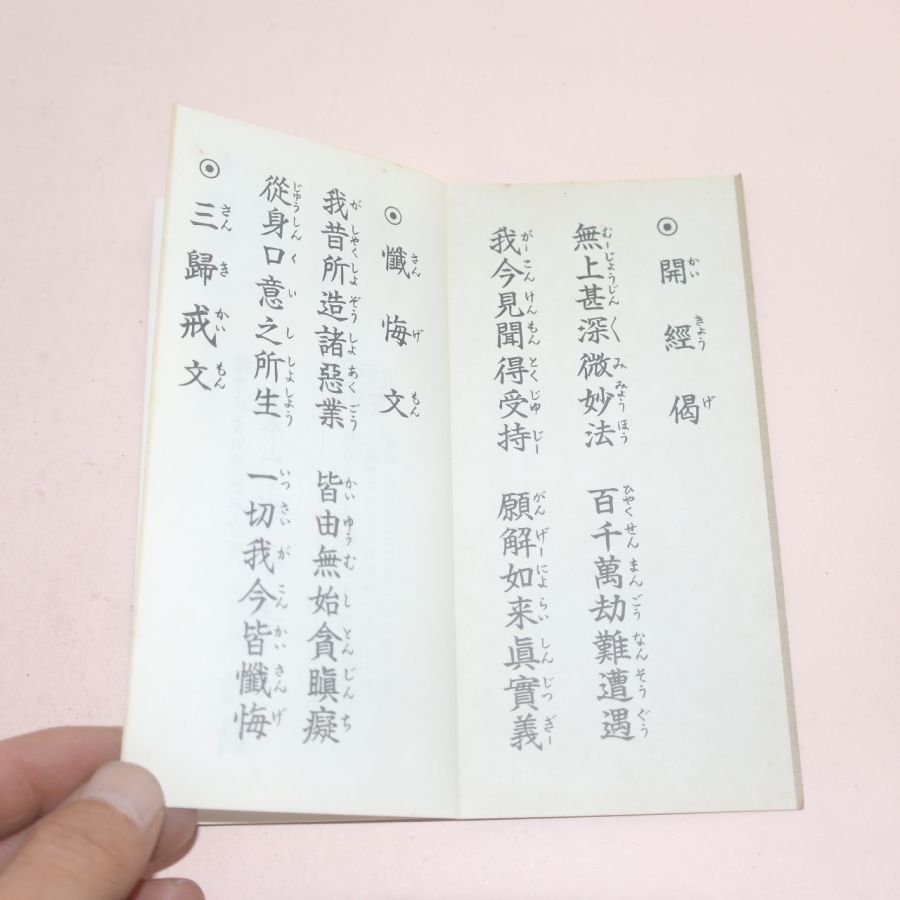 ◉ 開經偈
無上甚深微妙法 百千萬劫難遭遇
我今見聞得受持 願解如来眞實義
◉ 懺悔文
我昔所造諸惡業 皆由無始貪瞋癡
從身口意之所生 一切我今皆懺悔
◉ 三歸戒文